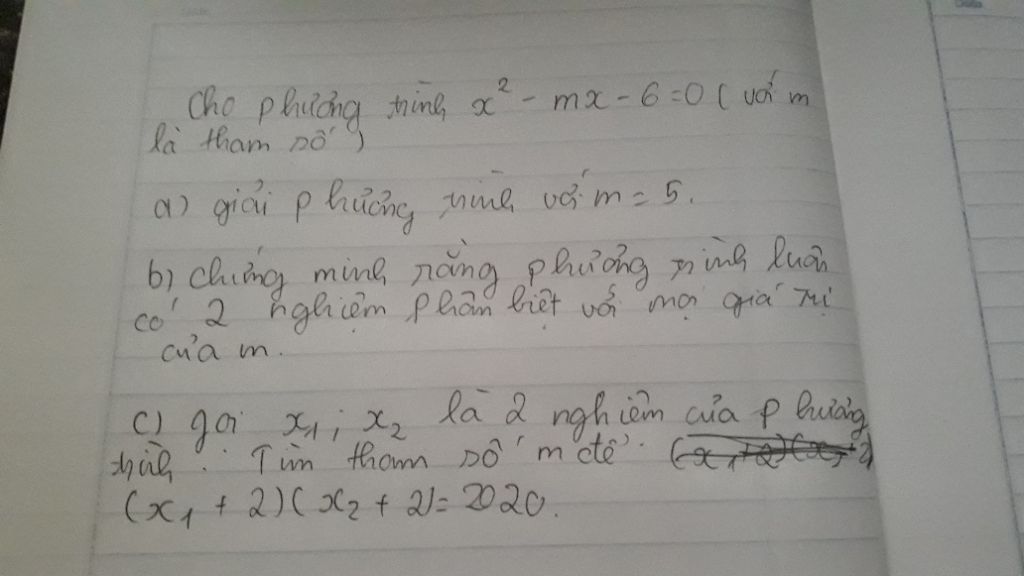 Cho phương trình x² - mx - 6 = 0 ( với m
là tham số )
a) giải phương trình với m = 5.
b) chứng minh rằng phương trình luôn
có 2 nghiệm phân biệt với mọi giá trị
của m.
c) gọi x₁ ; x₂ là 2 nghiệm của phương
trình. Tìm tham số m để
(x₁ + 2)( x₂ + 2) = 2020.